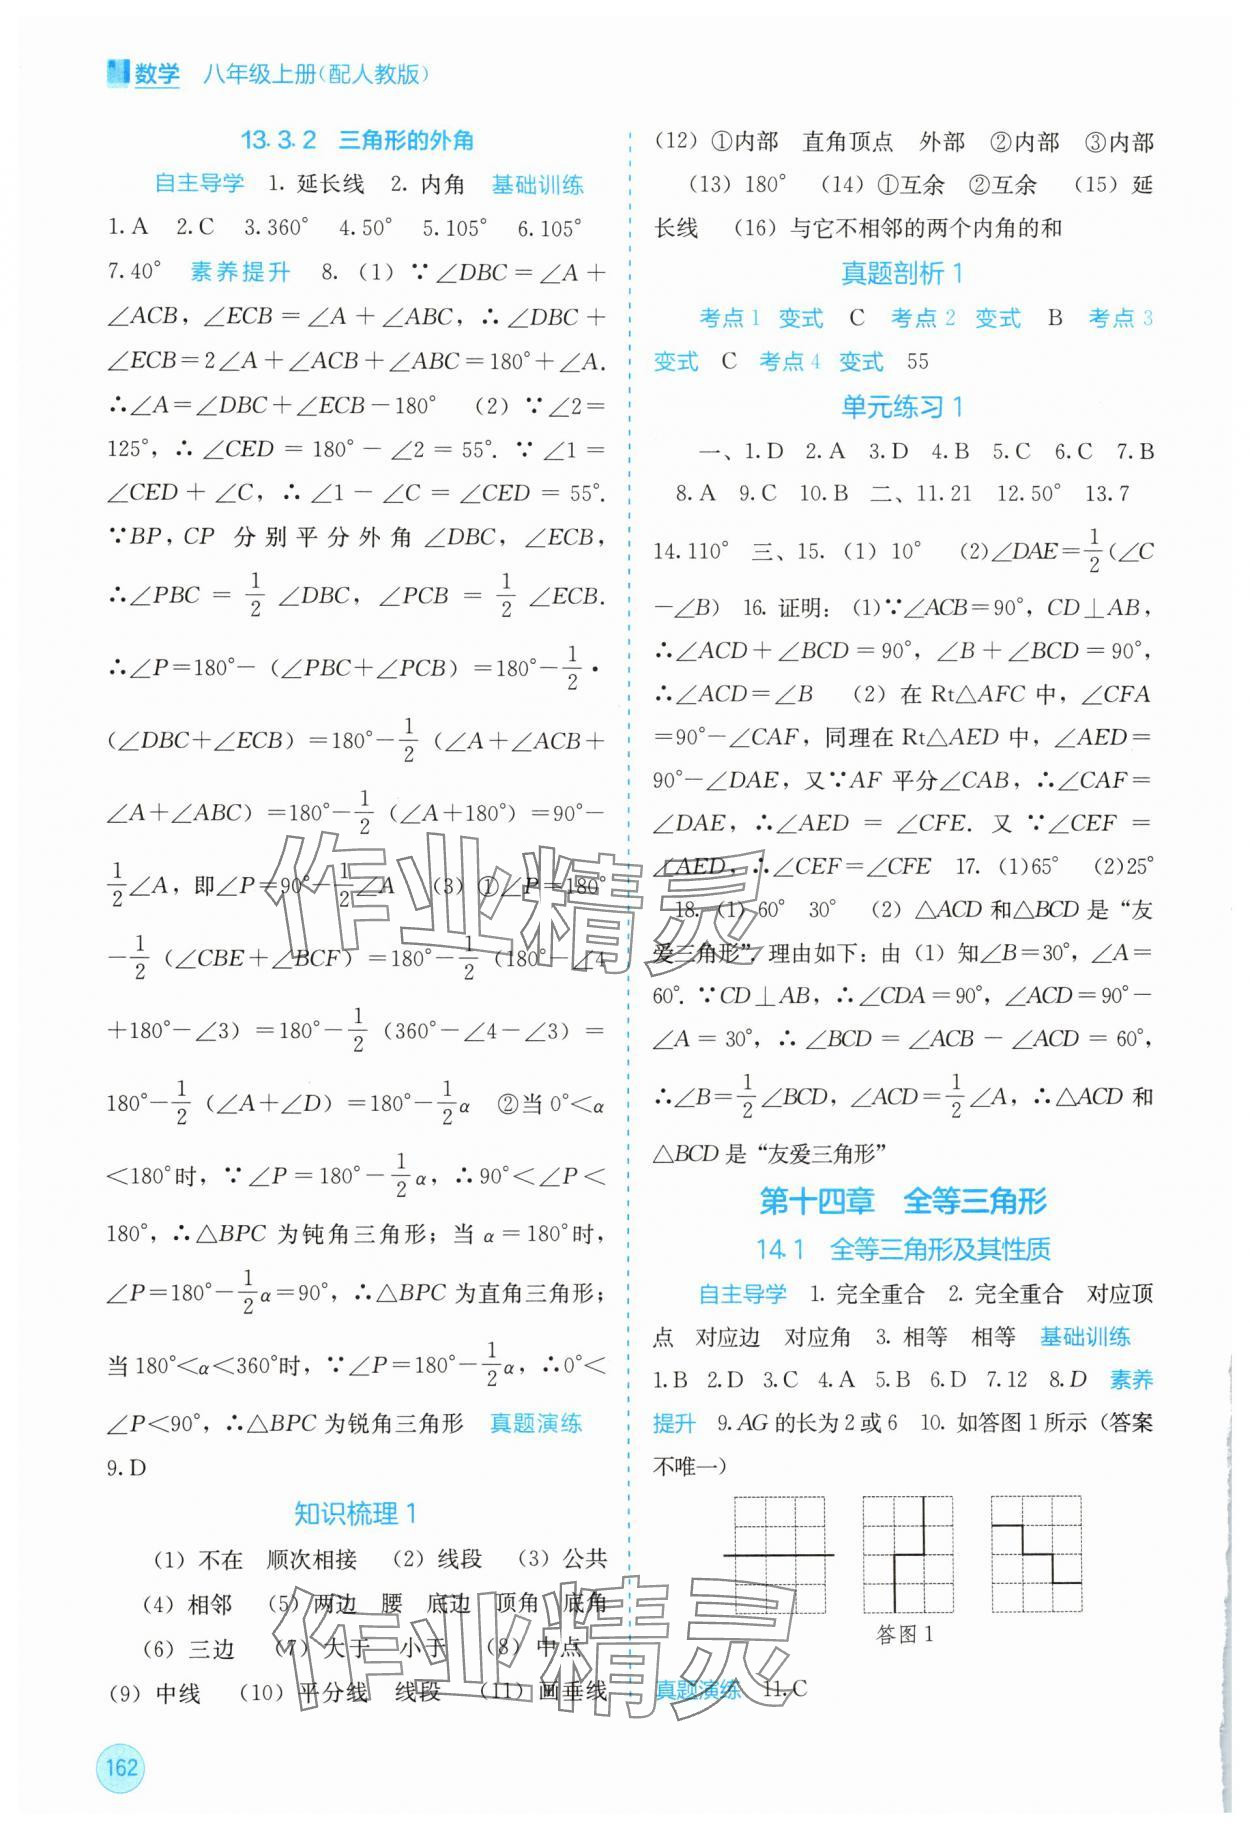 数学 八年级上册(配人教版)
13.3.2 三角形的外角
自主导学 1. 延长线 2. 内角 基础训练
1.A 2.C 3.360° 4.50° 5.105° 6.105°
7.40° 素养提升 8.(1)∵∠DBC=∠A+
∠ACB,∠ECB=∠A+∠ABC,∴∠DBC+
∠ECB=2∠A+∠ACB+∠ABC=180°+∠A.
∴∠A=∠DBC+∠ECB-180° (2)∵∠2=
125°,∴∠CED=180°-∠2=55°. ∵∠1=
∠CED+∠C,∴∠1-∠C=∠CED=55°.
∵BP,CP 分别平分外角∠DBC,∠ECB,
∴∠PBC=1/2∠DBC,∠PCB=1/2∠ECB.
∴∠P=180°-(∠PBC+∠PCB)=180°-1/2·
(∠DBC+∠ECB)=180°-1/2(∠A+∠ACB+
∠A+∠ABC)=180°-1/2(∠A+180°)=90°-
1/2∠A,即∠P=90°-1/2∠A (3)①∠P=180°
-1/2(∠CBE+∠BCF)=180°-1/2(180°-∠4
+180°-∠3)=180°-1/2(360°-∠4-∠3)=
180°-1/2(∠A+∠D)=180°-1/2α ②当0°<α
<180°时,∵∠P=180°-1/2α,∴90°<∠P<
180°,∴△BPC 为钝角三角形;当α=180°时,
∠P=180°-1/2α=90°,∴△BPC 为直角三角形;
当180°<α<360°时,∵∠P=180°-1/2α,∴0°<
∠P<90°,∴△BPC 为锐角三角形 真题演练
9.D
知识梳理 1
(1)不在 顺次相接 (2)线段 (3)公共
(4)相邻 (5)两边 腰 底边 顶角 底角
(6)三边 (7)大于 小于 (8)中点
(9)中线 (10)平分线 线段 (11)画垂线
162
(12)①内部 直角顶点 外部 ②内部 ③内部
(13)180° (14)①互余 ②互余 (15)延
长线 (16)与它不相邻的两个内角的和
真题剖析 1
考点1 变式 C 考点2 变式 B 考点3
变式 C 考点4 变式 55
单元练习 1
一、1.D 2.A 3.D 4.B 5.C 6.C 7.B
8.A 9.C 10.B 二、11.21 12.50° 13.7
14.110° 三、15.(1)10° (2)∠DAE=1/2(∠C
-∠B) 16. 证明:(1)∵∠ACB=90°,CD⊥AB,
∴∠ACD+∠BCD=90°,∠B+∠BCD=90°,
∴∠ACD=∠B (2)在 Rt△AFC 中,∠CFA
=90°-∠CAF,同理在 Rt△AED 中,∠AED=
90°-∠DAE,又∵AF 平分∠CAB,∴∠CAF=
∠DAE,∴∠AED=∠CFE. 又∵∠CEF=
∠AED,∴∠CEF=∠CFE 17.(1)65° (2)25°
18.(1)60° 30° (2)△ACD 和△BCD 是“友
爱三角形”,理由如下:由(1)知∠B=30°,∠A=
60°. ∵CD⊥AB,∴∠CDA=90°,∠ACD=90°-
∠A=30°,∴∠BCD=∠ACB-∠ACD=60°,
∴∠B=1/2∠BCD,∠ACD=1/2∠A,∴△ACD 和
△BCD 是“友爱三角形”
第十四章 全等三角形
14.1 全等三角形及其性质
自主导学 1. 完全重合 2. 完全重合 对应顶
点 对应边 对应角 3. 相等 相等 基础训练
1.B 2.D 3.C 4.A 5.B 6.D 7.12 8.D 素养
提升 9.AG 的长为 2 或 6 10. 如答图 1 所示(答案
不唯一)
答图 1
真题演练 11.C
作业精灵
作业精灵